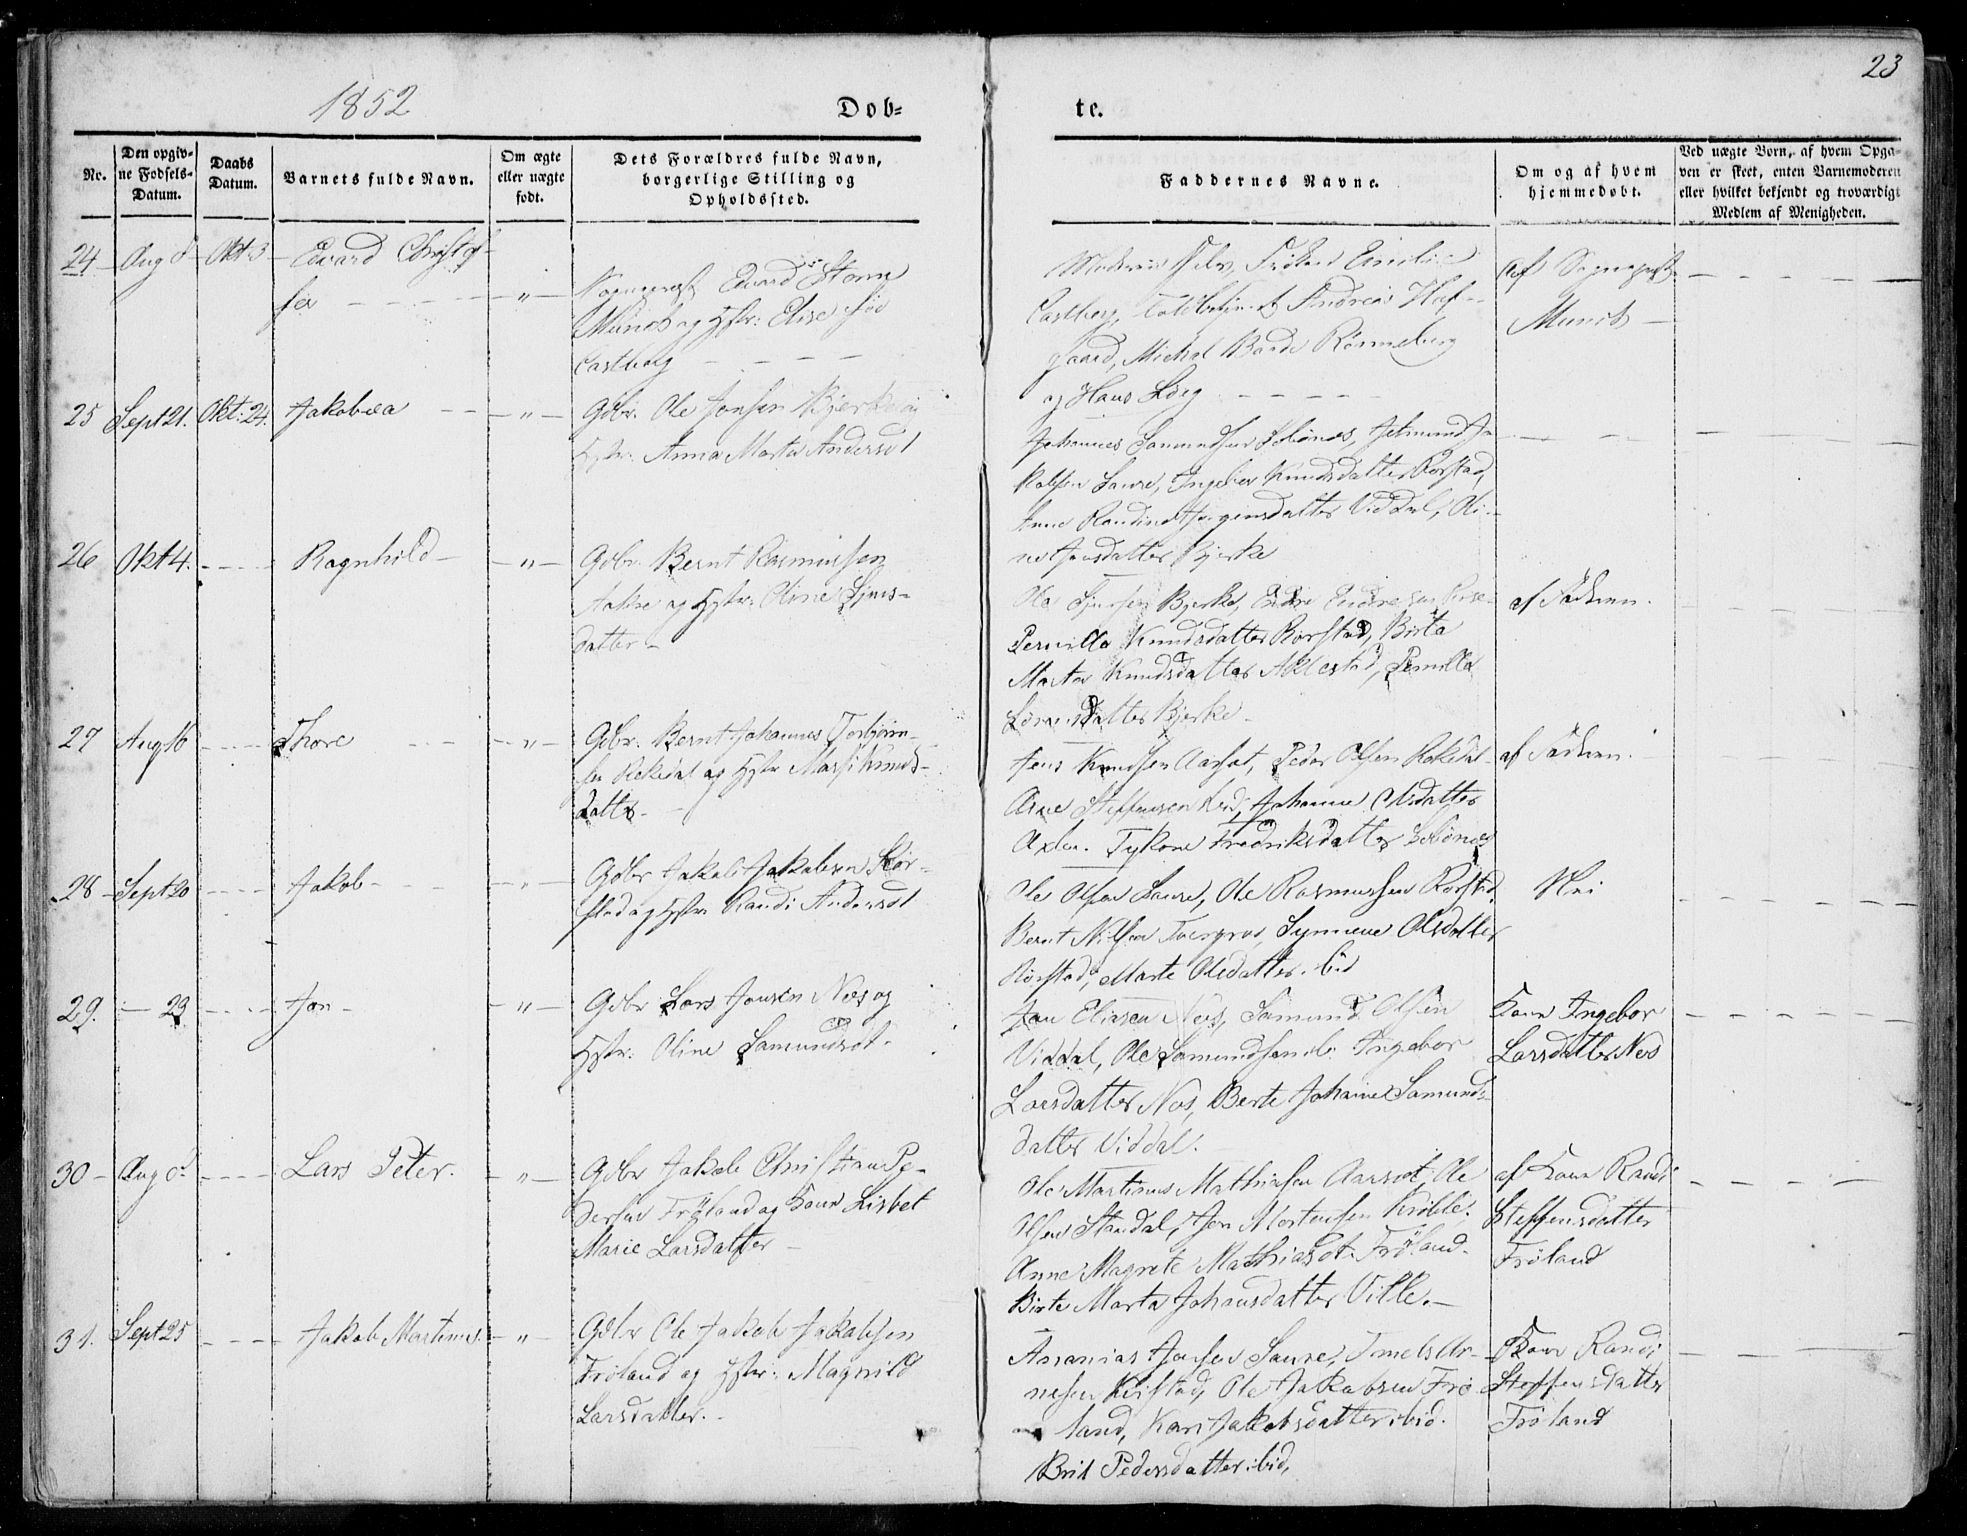 23
1852
Dob-
te.
Nr.
Den opgiv-
ne Fodsels-
Datum.
Daabs
Datum.
Barnets fulde Navn.
Om ægte
eller uægte
født.
Dets Forældres fulde Navn,
borgerlige Stilling og
Opholdssted.
Faddernes Navne.
Om og af hvem
hjemmedøbt.
Ved uægte Born, af hvem Opga-
ven er skeet, enten Barnemoderen
eller hvilket bekjendt og troværdigt
Medlem af Menigheden.
24 Aug 8 Okt. 3 Edvard Christof-
fer "
Edvard Storm
Munch og Hstr: Elise fød
Castberg
Frøken Emilie
Castberg, Andreas Haf-
gaard, Michal Bande Rønneberg
og Hans
af Sognepræst
Munch
25 Sept 21. Okt: 24. Jakobæa "
Gdbr. Ole Jonsen Bjerke og
Hstr: Anna Marta Andersdt
Johannes Samundsen Lebønes,
Saure, Ingebor Knudsdatter Rørstad,
Anne Randine Jørgensdatter Viddal, Oli-
ne Jensdatter Bjerke
26 Okt 4. Ragnhild "
Gdbr. Bernt Rasmussen
Aakre og Hstr: Oline Sjurs-
datter
Ole Sjursen Bjerke, Endre
Pernille Knudsdatter Rørstad, Birta
Marta Knudsdatter Aklestad, Pernille
datter Bjerke
af Faderen.
27 Aug 16 Thore "
Gdbr. Bernt Johannes Torbjørn-
sen Rekedal og Hstr Knuds-
datter
Jens Knudsen Aarsæt, Peder Olsen Rekedal
Arne Steffensen Johanne Olsdatter
Fredriksdatter Lebønes
af Faderen.
28 Sept 20 Jakob "
Gdbr Jakob Jakobsen Rør-
stad og Hstr Randi Andersdt
Ole Olsen Saure, Ole Rasmussen Rørstad,
Bernt Nilsen Synneve Olsdatter
Rørstad, Marte Olsdatter ibid
Nei
29. — 23 Jon "
Gdbr Lars Jonsen Næs og
Hstr: Oline Samundsdt.
Jon Eliasen Næs, Samund Olsen
Viddal, Ole Samundsen ib. Ingebor
Larsdatter Næs, Berte Johanne Samunds-
datter Viddal.
Kone Ingebor
Larsdatter Næs
30 Aug 8. Lars Peter. "
Gdbr Jakob Christian Pe-
dersen Frøland og Kone Lisbet
Marie Larsdatter
Ole Martinus Mathiasen Aarset, Ole
Olsen Standal, Jon Mortensen Krøkle.
Anne Magrete Mathiasdt. Frøland.
Birte Marta Johansdatter Ville.
af Kone Randi
Steffensdatter
Frøland
31. Sept 25 Jakob Martinus. "
Gdbr Ole Jakob Jakobsen
Frøland og Hstr: Magnild
Larsdatter.
Ananias Jensen Saure,
Ole Jakobsen Frø-
land, Kari Jakobsdatter ibid.
Brit Pedersdatter ibid.
Kone Randi
Steffensdatter
Frøland